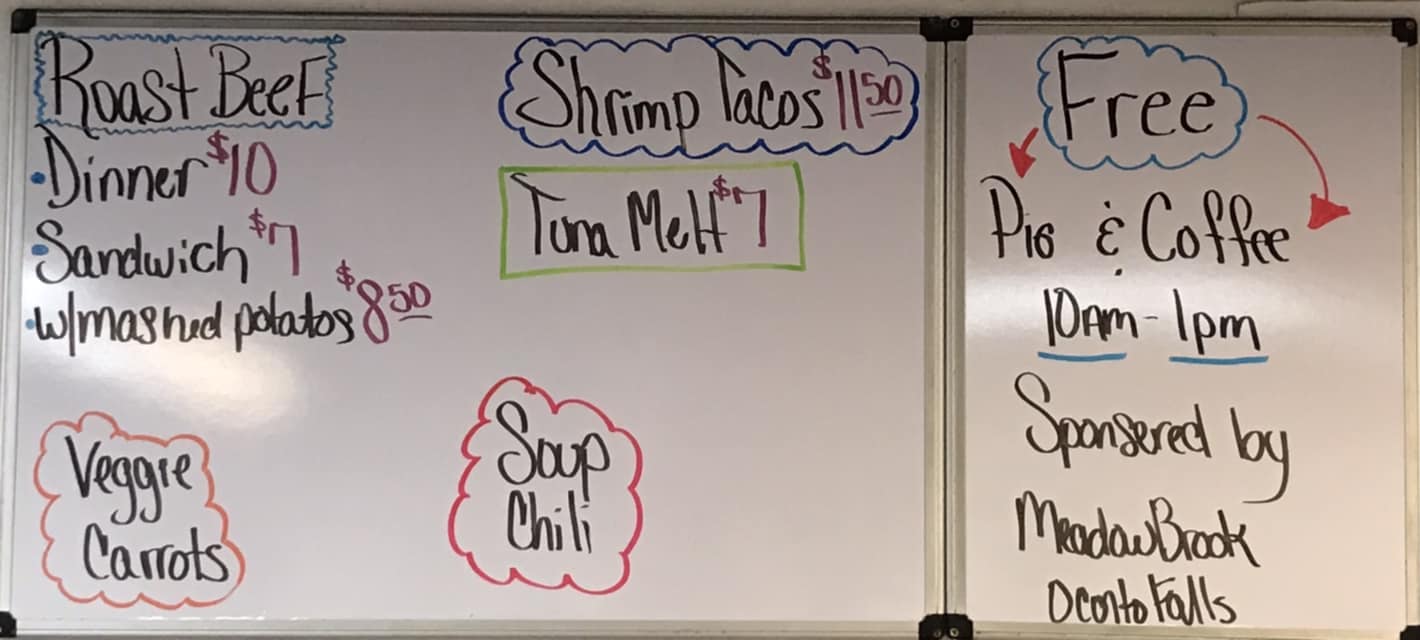 Roast Beef
• Dinner $10
• Sandwich $7
• w/mashed potatos $8 50
Veggie
Carrots
Shrimp Tacos $11 50
Tuna Melt $7
Soup
Chili
Free
Pie & Coffee
10Am - 1pm
Sponsered by
MeadowBrook
Oconto Falls